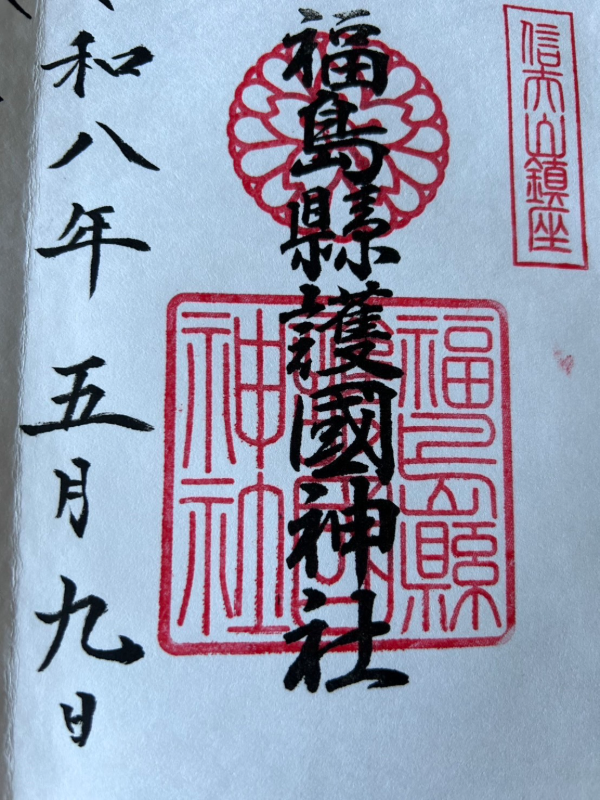 信夫山鎮座
福島縣護國神社
福島縣
神社
和八年 五月九日